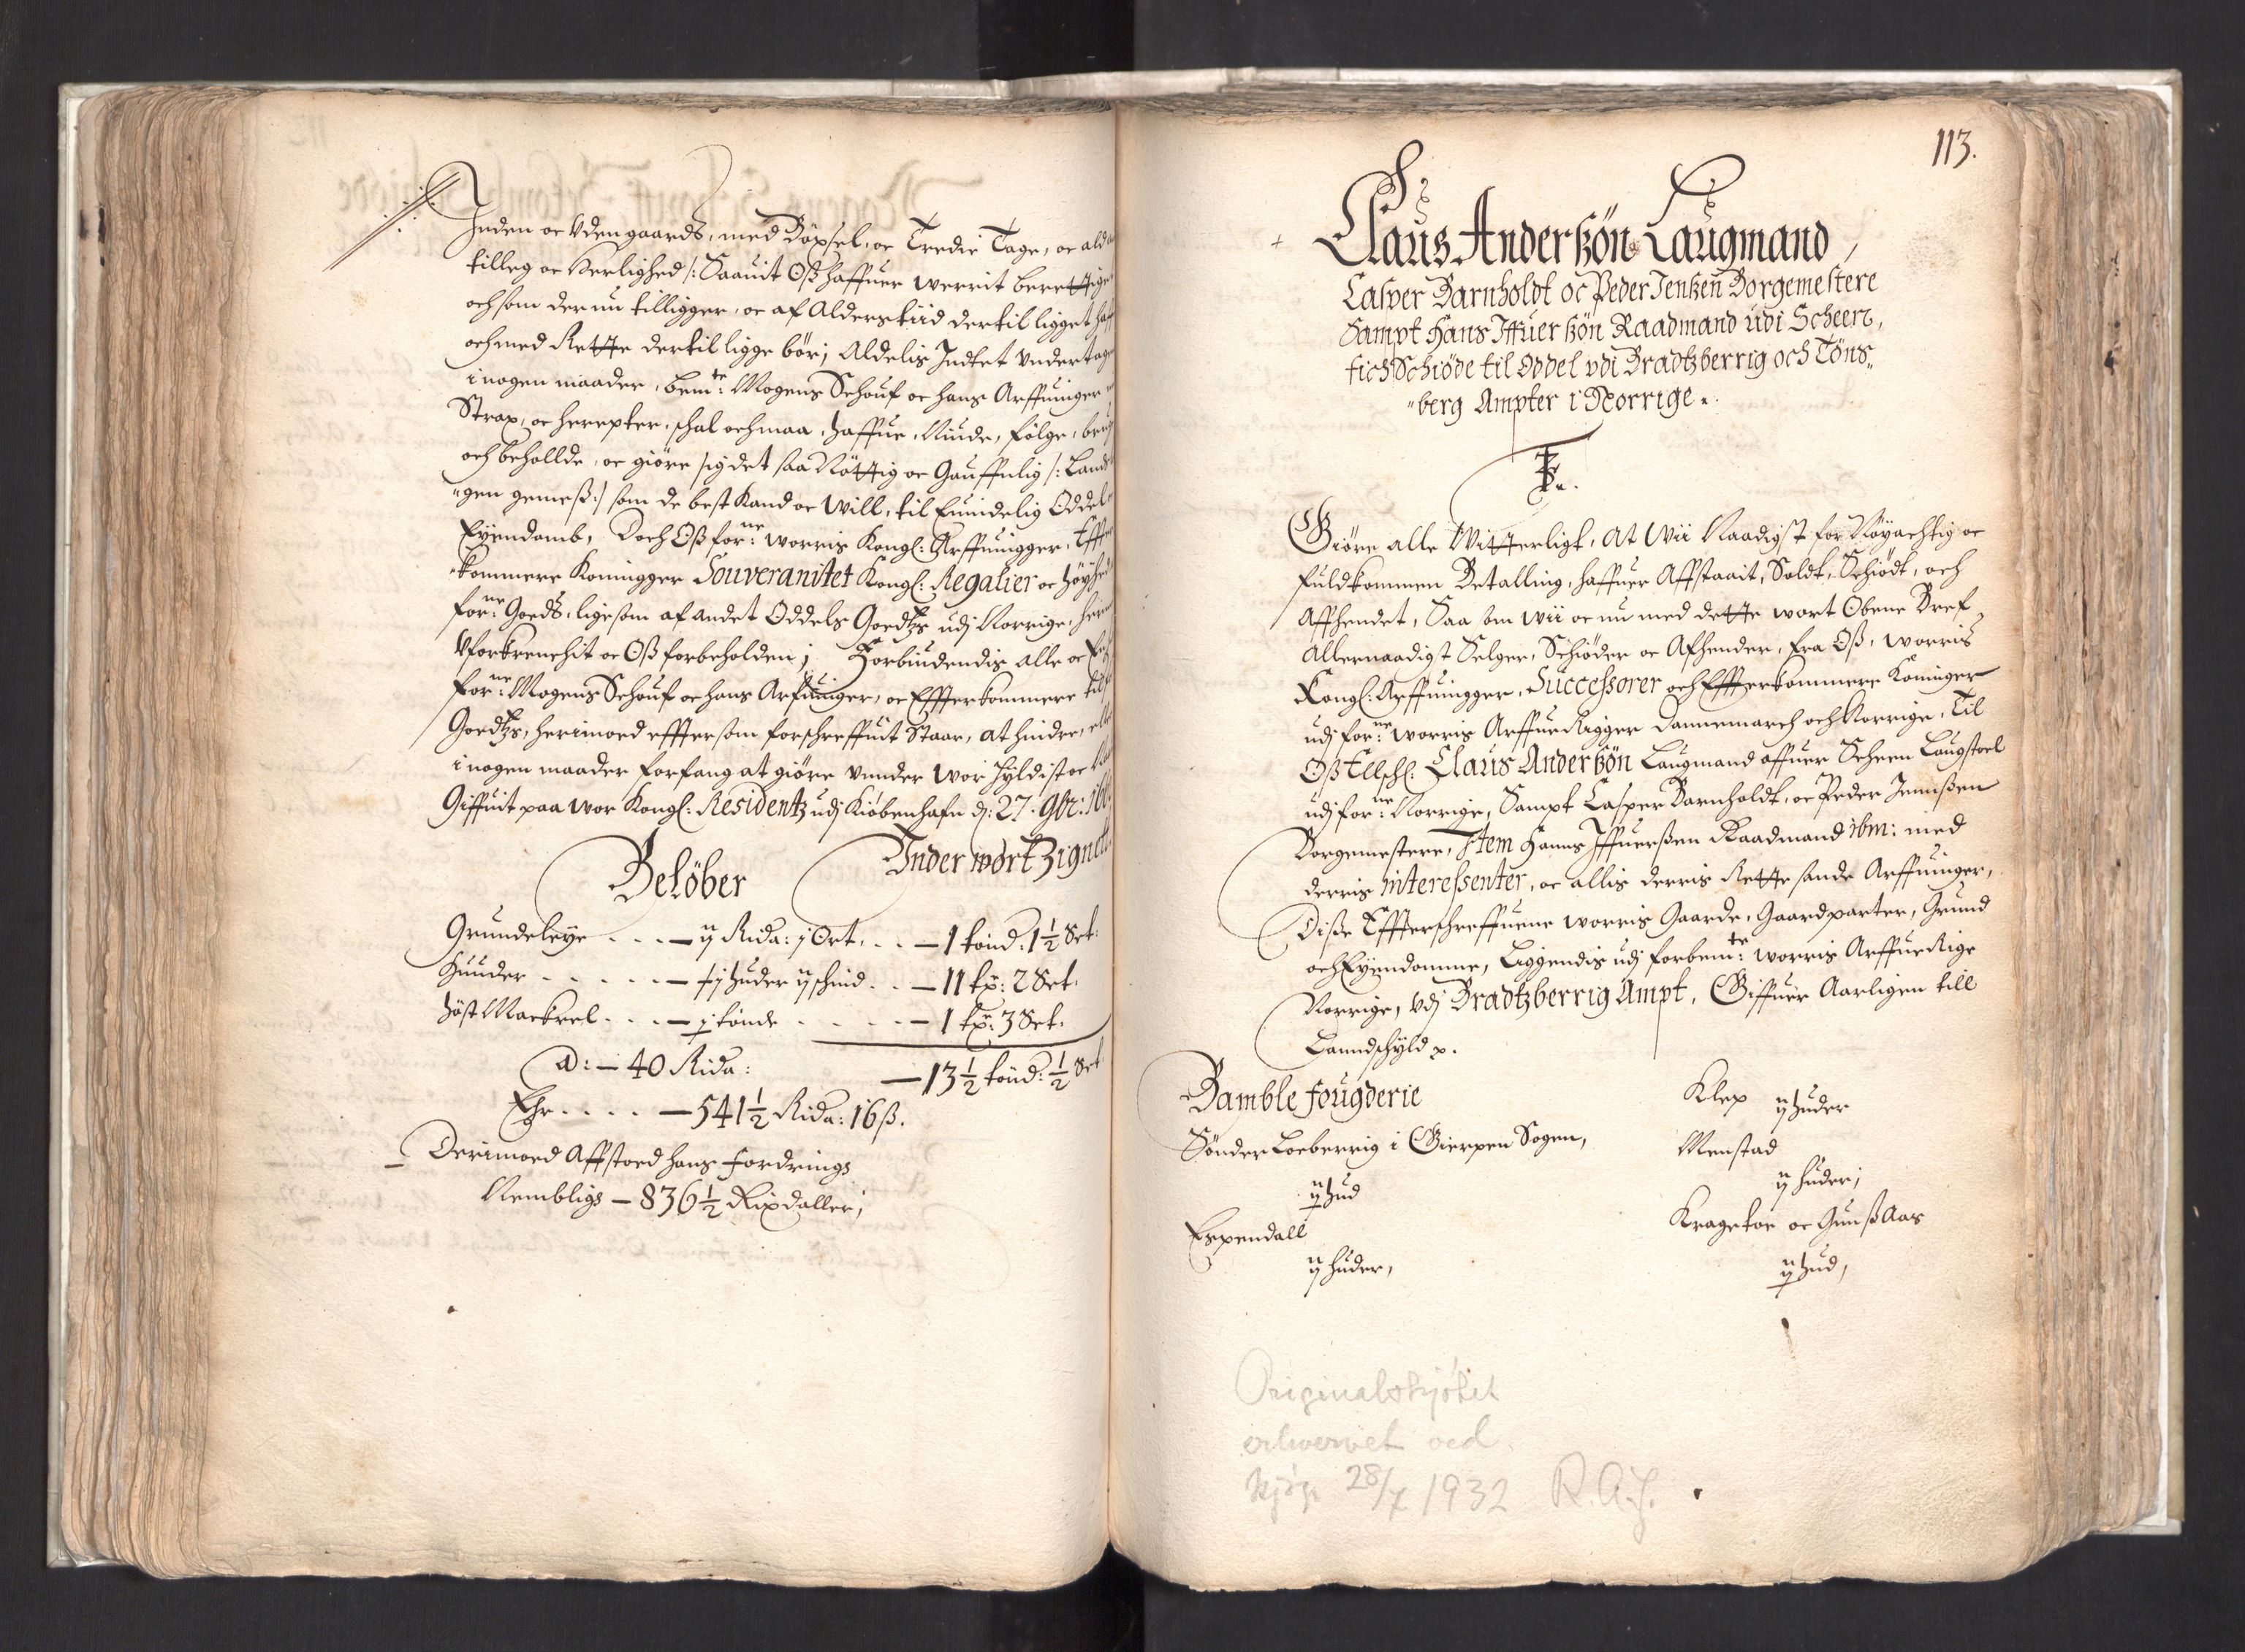 Inden oc Udengaards, med Böxsel, oc Tredie Tage, oc ald
tilleg oc Herlighed /: Saavit Oß haffuer werrit berettige
och som der nu tilligger, oc af Alderstiid dertil ligget haff
och med Rette dertil ligge bör; Aldelis Indtet Undertage
i nogen maader, bemte: Mogens Schouf oc hans Arffuinger
Strax, oc herepter, schal och maa, haffue, Niude, fölge, brug
och beholde, oc giöre sig det saa Nöttig oc Gauffnlig /: Land
"gen gemeß :/ som de best Kand oc Will, til Euindelig Oddel
Eyendomb, Doch Oß forne: worris Kongl: Arffuingger, Effter
"kommere Konningger Souveranitet Kongl: Regalier oc höyhed
forne: Goeds, lige som af andet Oddels Goedtzs udj Norrige, her
Uforkrenchit oc Oß forbeholden; Forbiudendis alle oc
forne: Mogens Schouf oc hans Arfuinger, oc Effterkommere
Goedtzs, herimoed effter som forschreffuit Staar, at hindre, ell
i nogen maader forfang at giöre under Wor Hyldist oc
Giffuit paa Wor Kongl: Residentz udj Kiöbenhafn d: 27. 9br: 166
Under wort Zignett
Belöber
Grundeleye . . . — ij Rida: j Ort. . . — 1 tönd: 1½ Set:
Huuder - - - - - — huder ij schind . . — 11 tp: 2 Set.
Höst Mackrel . . . — j tönde - - - - - — 1 tp: 3 Set.
a: — 40 Rida: — 13½ tönd: ½ Set
Ehr . . . . — 541½ Rida: 16ß.
Derimoed Affstoed hans fordrings
Nembligs — 836½ Rixdaller;
113.
Claus Anderßön Laugmand,
Casper Barnholdt oc Peder Jenßen Borgemestere
Sampt Hans Iffuerßön Raadmand udi Scheen,
fich Schiöde til Oddel udi Bradtzberrig och Töns„
"berg Ampter i Norrige.
Giöre alle Witterligt, At Wii Naadigst for Nöyachtig oc
fuldkommen Betalling, haffuer Affstaait, Soldt, Schiödt, och
Affhendet, Saa som Wii oc nu med dette wort Obene Bref,
Allernaadigst Selger, Schiöder oc Afhender, fra Oß, Worris
Kongl: Arffuingger, Successorer och Effterkommere Koninger
udj forne: Worris Arffue Rigger Dannemarch och Norrige, Til
Oß Elschl: Claus Anderßön Laugmand offuer Scheen Laugstoel
udj forne: Norrige, Sampt Casper Barnholdt, oc Peder Jennßen
Borgemestere, Item Hanns Iffuerßen Raadmand ibm: med
derris Interessenter, oc allis derris Rette sande Arffuinger,
Diße Effterschreffuene worris Gaarde, Gaardparter, Grund
och Eyendomme, Liggendis udj forbemte: worris Arffue Rige
Norrige, Udj Bradtzberrig Ampt, Giffuer Aarligen till
Lanndschyld p.
Bamble fougderie
Sönder Loeberrig i Gierpen Sogen,
ij hud
Espendall
ij huder,
Klep ij huder
Menstad
ij huder;
Kragetoe oc Gunßaas
ij hud,
Originalskjötet
erhvervet ved
kjöp 28/X 1932 R.A.